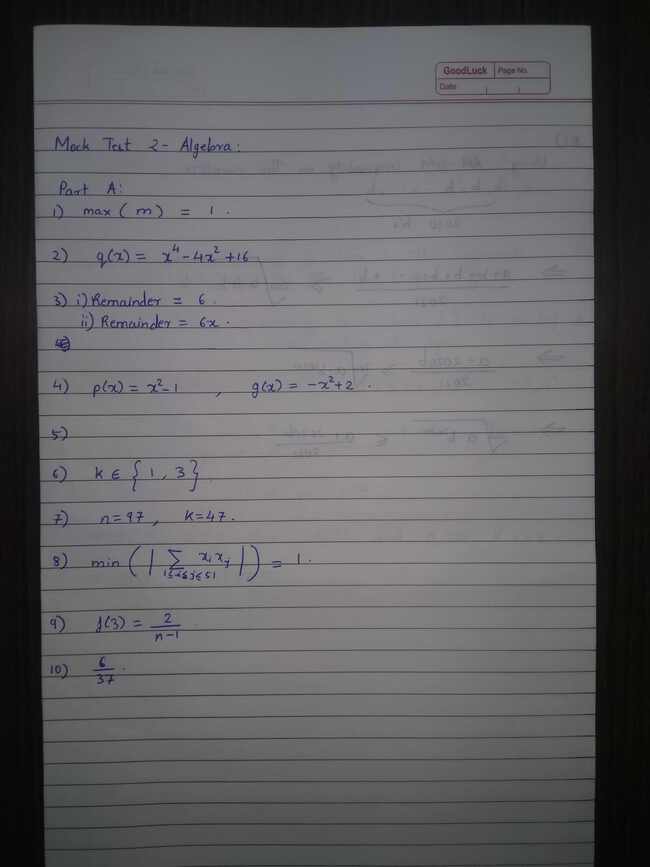 GoodLuck Page No.
Date
Mock Test 2 - Algebra:
Part A:
1) max(m) = 1.
2) q(x) = x⁴ - 4x² + 16
3) i) Remainder = 6.
ii) Remainder = 6x.
4) p(x) = x² - 1 , g(x) = -x² + 2.
5)
6) k ∈ {1, 3}
7) n = 97, k = 47.
8) min(|∑ xᵢxⱼ|) = 1.
1≤i≤j≤51
9) f(3) = 2/(n-1)
10) 6/37.